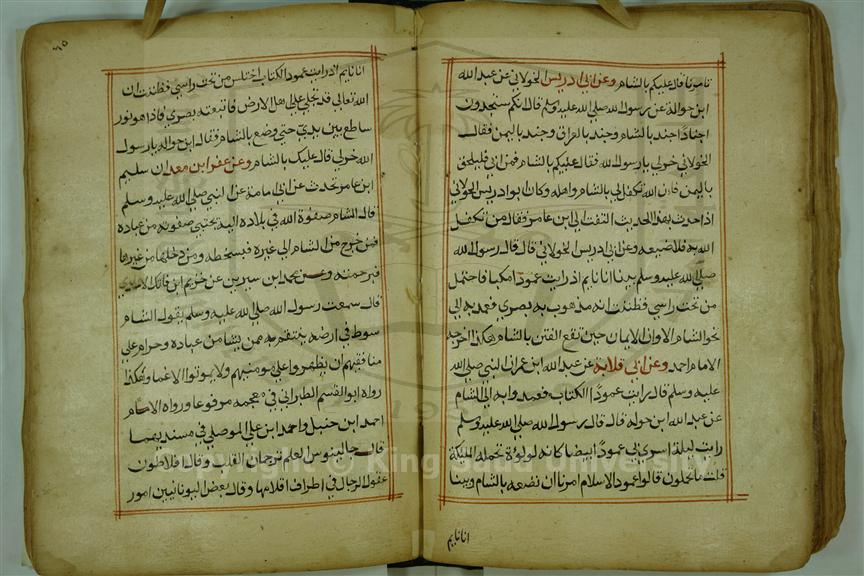 تامرنا فقال عليكم بالشام وعن ابي ادريس الخولاني عن عبد الله
ابن حوالة عن رسول الله صلى الله عليه وسلم قال انكم ستجدون
اجنادا جند بالشام وجند بالعراق وجند باليمن فقال
الخولاني خر لي يا رسول الله فقال عليكم بالشام فمن ابى فليلحق
باليمن فان الله تكفل لي بالشام واهله وكان ابو ادريس الخولاني
اذا حدث بهذا الحديث التفت الى ابن عامر وقال من تكفل
الله به فلا ضيعه وعن ابي ادريس الخولاني قال قال رسول الله
صلى الله عليه وسلم بينا انا نايم اذ رايت عمودا فاحتمل
من تحت راسي فظننت انه مذهوب به بصري فعمد به الى
نحو الشام الا وان الايمان حين تقع الفتن بالشام هكذا اخرجه
الامام احمد وعن ابي قلابه عن عبد الله ابن عن النبي صلى الله
عليه وسلم قال رايت عمود الكتاب فعمد وابه الى الشام
عن عبد الله ابن حوله قال قال رسول الله صلى الله عليه وسلم
رايت ليلة اسري بي عمودا ابيضا كانه لولوة تحمله الملكة
قلت ما تحملون قالوا عمود الاسلام امرنا ان نضعه بالشام وبينا
انا نايم
٦٥
انا نايم اذ رايت عمود الكتاب اختلس من تحت راسي فظننت ان
الله تعالى قد تخلى على اهل الارض فاتبعته بصري فاذا هو نور
ساطع بين يدي حتى وضع بالشام فقال ابن حواله يا رسول
الله خر لي قال عليك بالشام وعن عفر ابن معدان سليم
ابن عامر تحدث عن ابي امامة عن النبي صلى الله عليه وسلم
قال الشام صفوة الله في بلاده اليه يجتبي صفوته من عباده
فمن خرج من الشام الى غيره فبسخطه ومن دخلها من غيرها
فبرحمته وعن محمد ابن سيرين عن خريم ابن فاتك الاسدي
قال سمعت رسول الله صلى الله عليه وسلم يقول الشام
سوط في ارضه ينتقم به ممن يشا من عباده وحرام على
منافقيهم ان يظهروا على مومنيهم ولا يموتوا الا غما وهكذا
رواه ابو القسم الطبراني في معجمه مرفوعا ورواه الامام
احمد ابن حنبل واحمد ابن علي الموصلي في مسنديهما
قال جالينوس العلم ترجمان القلب وقال افلاطون
عقول الرجال في اطراف اقلامها وقال بعض اليونانيين امور
Copyright © King Saud University